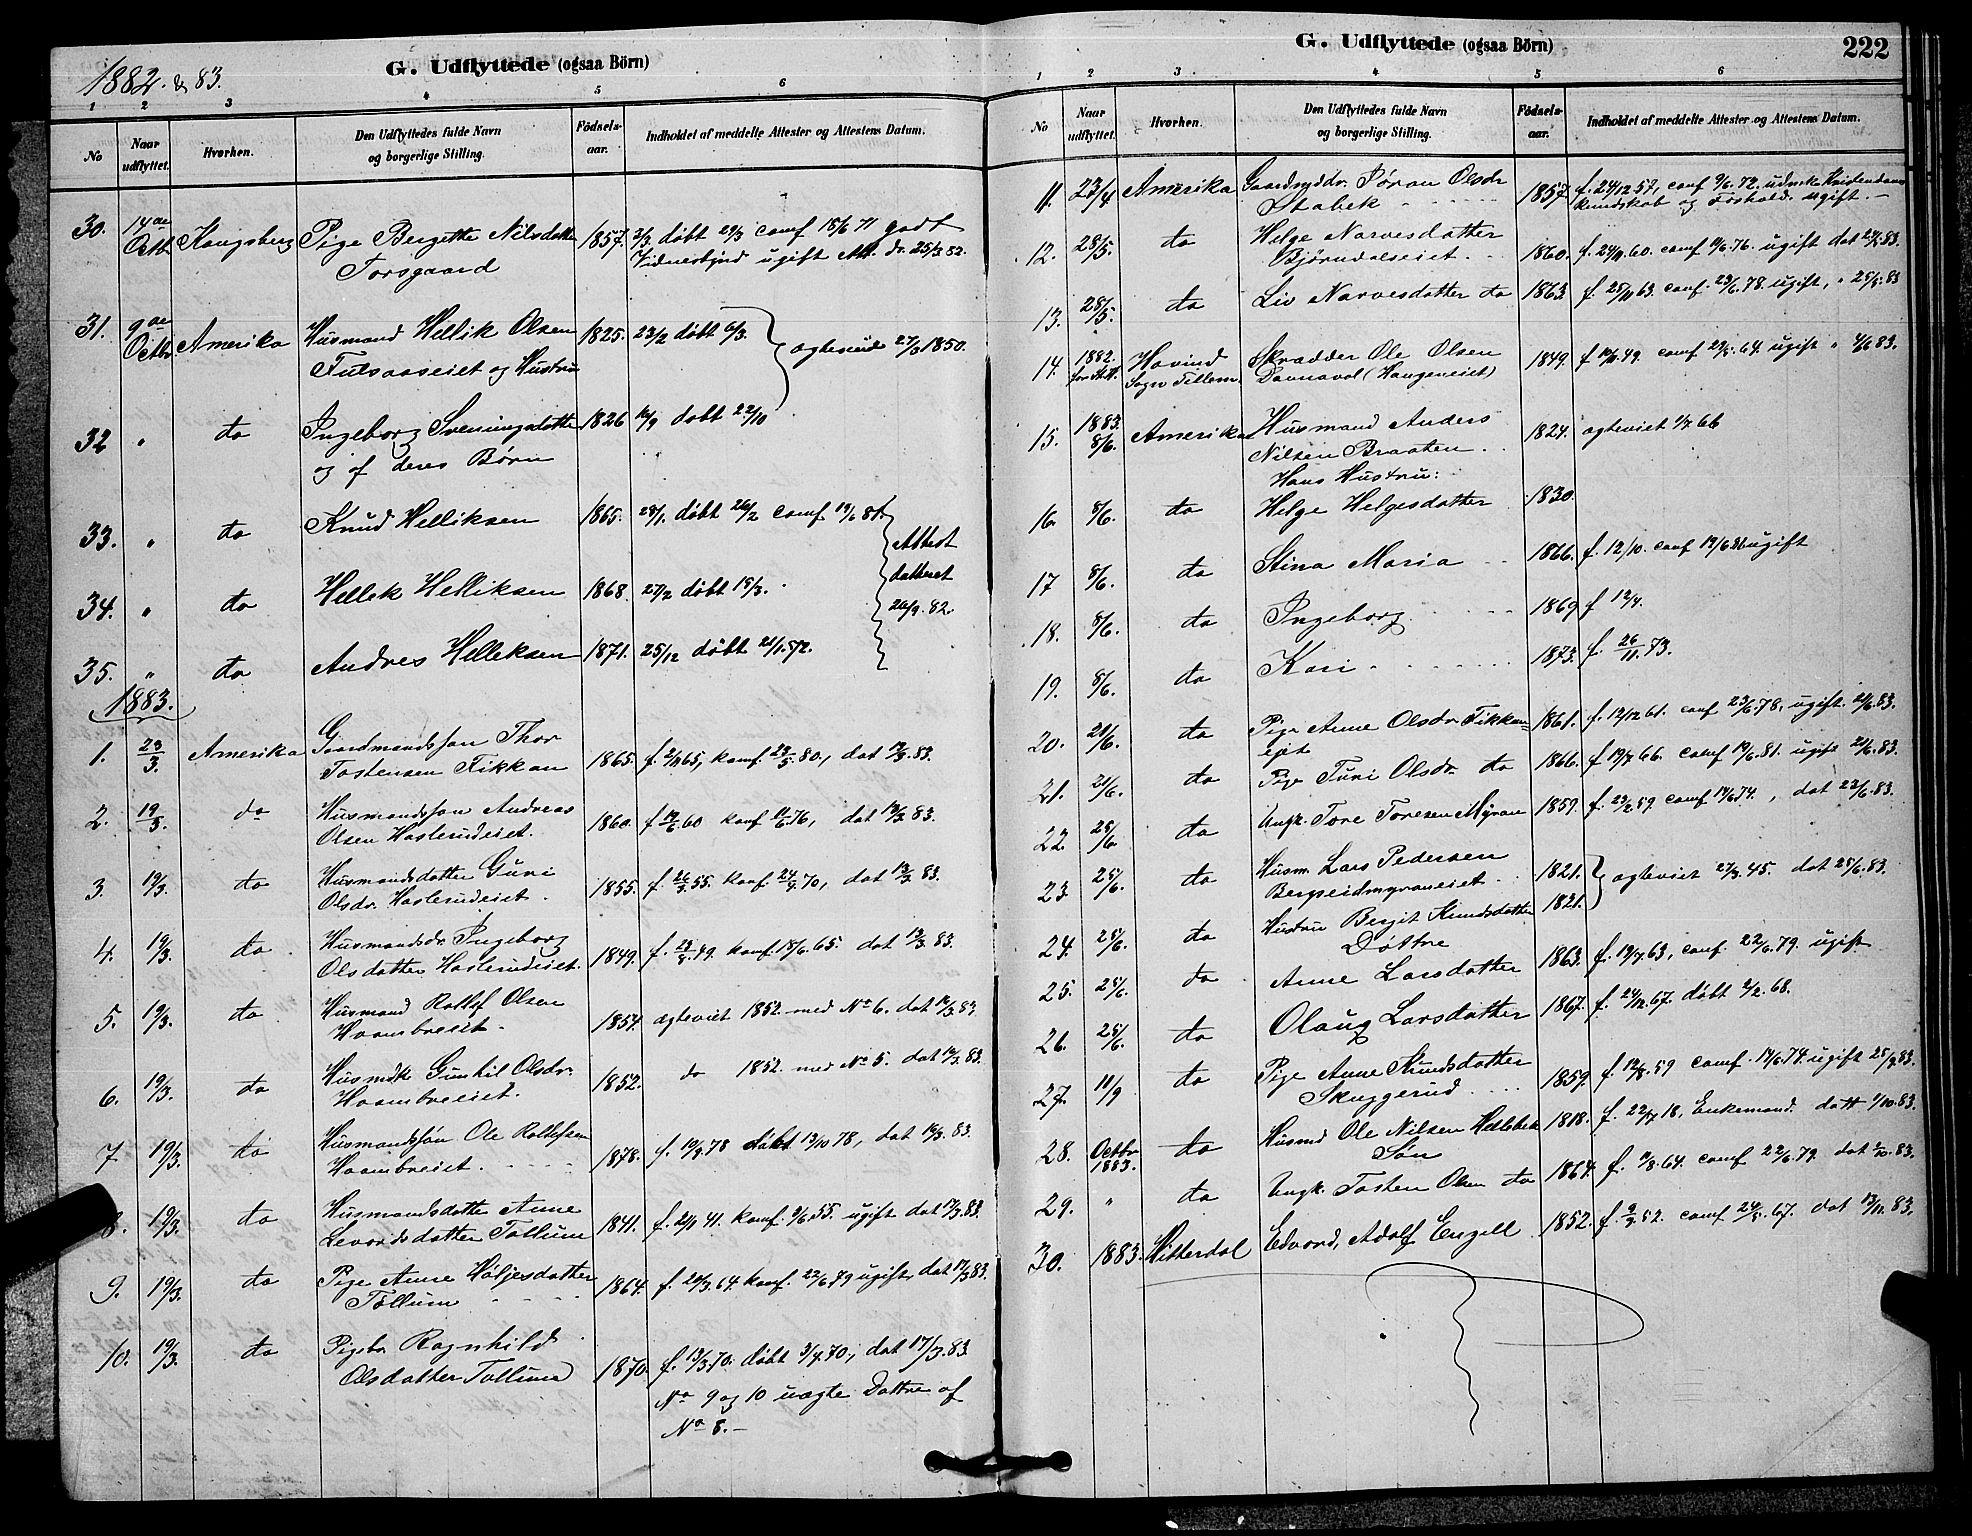 1882 & 83.
G. Udflyttede (ogsaa Börn)
1 2 3 4 5 6
No
Naar udflyttet.
Hvorhen.
Den Udflyttedes fulde Navn og borgerlige Stilling.
Födsels-aar.
Indholdet af meddelte Attester og Attestens Datum.
30. 14de Octb. Kongsberg Pige Bergette Nilsdatter 1857. 2/3 døbt 29/3 conf 18/6 71 godt
Torsgaard Vidnesbyrd ugift Att.
31. 9de Octbr Amerika Husmand Hellik Olsen 1825. 23/2 døbt 6/3.
Fulsaaseiet og Hustru ægteviede 27/3 1850.
32 " do Ingeborg Sveinungsdatter 1826 16/9 døbt 22/10
og af deres Børn
33. " do Knud Helliksen 1865. 28/1. døbt 26/2 conf 19/6 81.
34. " do Hellek Helliksen 1868. 27/2 døbt 15/3.
35. " do Andres Helleksen 1871. 25/12 døbt 21/1.72.
Attest datteret 26/9.82.
1883.
1. 23/3. Amerika Gaardmandssøn Thor
Tostensen Fikkan 1865. f. 2/11 65, konf. 23/5.80., dat 13/3.83.
2. 19/3. do Husmandssøn Andreas
Olsen Haslerudeiet. 1860. f 14/6.60 konf 11/6.76, dat 13/3 83.
3. 19/3. do Husmandsdatter Guri
Olsdr. Haslerudeiet. 1855. f. 26/3.55. konf. 24/9.70, dat 13/3 83.
4. 19/3. do Husmandsdr. Ingeborg
Olsdatter Haslerudeiet. 1849. f. 23/8.49. konf. 18/6.65. dat 13/3 83.
5. 19/3. do Husmand Rollef Olsen
Haambreiet. 1854. ægteviet 1882 med No 6. dat 16/3.83
6. 19/3. do Gunhil Olsdr.
Haambreiet. 1852. do 1882. med No 5. dat 16/3.83.
7 19/3. do Husmandssøn Ole Rollefsen
Haambreiet. 1878. f. 19/9.78 døbt 13/10 78, dat 16/3.83.
8. 19/3. do Husmandsdatter Anne
Levordsdatter Tollum 1841. f. 2/1 41. konf. 9/6.55. ugift dat 17/3.83.
9. 19/3. do Pige Anne Høljesdatter
Tollum 1864. f. 20/3.64. konf. 22/6.79 ugift, dat 17/3 83.
10. 19/3. do Ragnhild
Olsdatter Tollum 1870. f. 13/3.70. døbt 3/4.70, dat 17/3.83.
No 9 og 10 uægte Døttre af
No 8.—
G. Udflyttede (ogsaa Börn)
222
1 2 3 4 5 6
No
Naar udflyttet.
Hvorhen.
Den Udflyttedes fulde Navn og borgerlige Stilling.
Födsels-aar.
Indholdet af meddelte Attester og Attestens Datum.
11. 23/4 Amerika Jøran Olsdr
Stabek 1857. f. 24/12 57, conf 9/6.72. Kristendoms
kundskab og Forhold. ugift.—
12. 28/5. do Helge Narvesdatter
Bjørndalseiet. 1860. f. 24/11.60. conf 11/6.76. ugift dat
13. 28/5. do Liv Narvesdatter do 1863. f. 25/11 63. conf. 23/6.78. ugift, " 25/5.83
14. 1882. Hovind Skrædder Ole Olsen
Sogn Tillem. (Haugeneiet) 1849. f 10/11.49. conf 29/5.64. ugift " 4/6 83.
15. 1883. 8/6. Amerika Husmand Anders
Nilsen Braaten. 1824. ægteviet 1/7 66
Hans Hustru:
16. 8/6. do Helge Helgesdatter 1830.
17 8/6. do Stina Maria 1866. f. 12/10. conf 19/6 81 ugift
18. 8/6. do Ingeborg. 1869 f 12/4.
19. 8/6. do Kari 1873. f. 26/11.73.
20. 21/6. do Pige Anne Olsdr. Fikkan=
eiet 1861. f. 12/12 61. conf 23/6.78, ugift. 21/6.83.
21. 21/6. do Pige Turi Olsdr. do 1866. f 19/7 66. conf 19/6.81. ugift 21/6.83.
22. 25/6. do Ungk. Tore Toresen Myran 1859. f. 23/2.59 conf 14/6 74., dat 22/6.83.
23. 25/6. do Husm. Lars Pedersen
Bergseidmyraneiet. 1821.
24. 25/6. do Hustru Bergit Knudsdatter 1821. ægteviet 27/3.45. dat 25/6.83.
Døttre
25. 25/6. do Anne Larsdatter 1863. f. 19/7.63, conf. 22/6.79. ugift
26. 25/6. do Olaug Larsdatter 1867. f. 24/12.67. døbt 2/2.68.
27. 11/9 do Pige Anne Knudsdatter
Skuggerud 1859. f. 12/8.59 conf. 14/6.74. ugift
28. Octbr 1883. do Husmd Ole Nilsen Hellebek 1818. f. 22/4 18, Enkemand. datt 1/10.83.
Søn
29. " do Ungk. Tosten Olsen do 1864. f. 11/8.64. conf 22/6.79. dat 1/10.83.
30. 1883. Hitterdal Edvard, Adolf Engell 1852. f. 9/2.52. conf 26/5.67. dat 13/11.83.